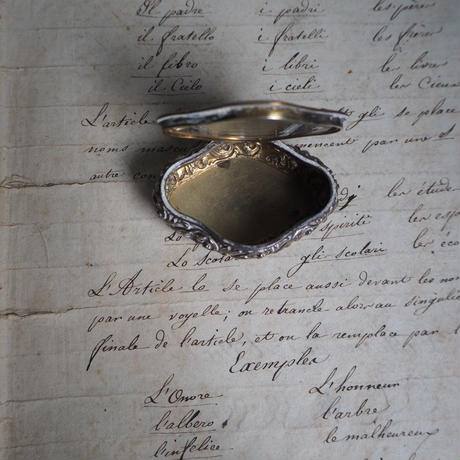 Il padre i padri les pères
il fratello i fratelli les frères
il libro i libri les livre
il Cielo i cieli les Cieux
L'article gli se place
noms mascu mencent par une s
autre con
les étude
spiriti les esp
Lo scola gli scolari les éco
L'Article lo se place aussi devant les nom
par une voyelle; on retranche alors au singulie
finale de l'article, et on la remplace par l
Exemples
L'Onore L'honneur
l'albero l'arbre
l'infelice le malheureux